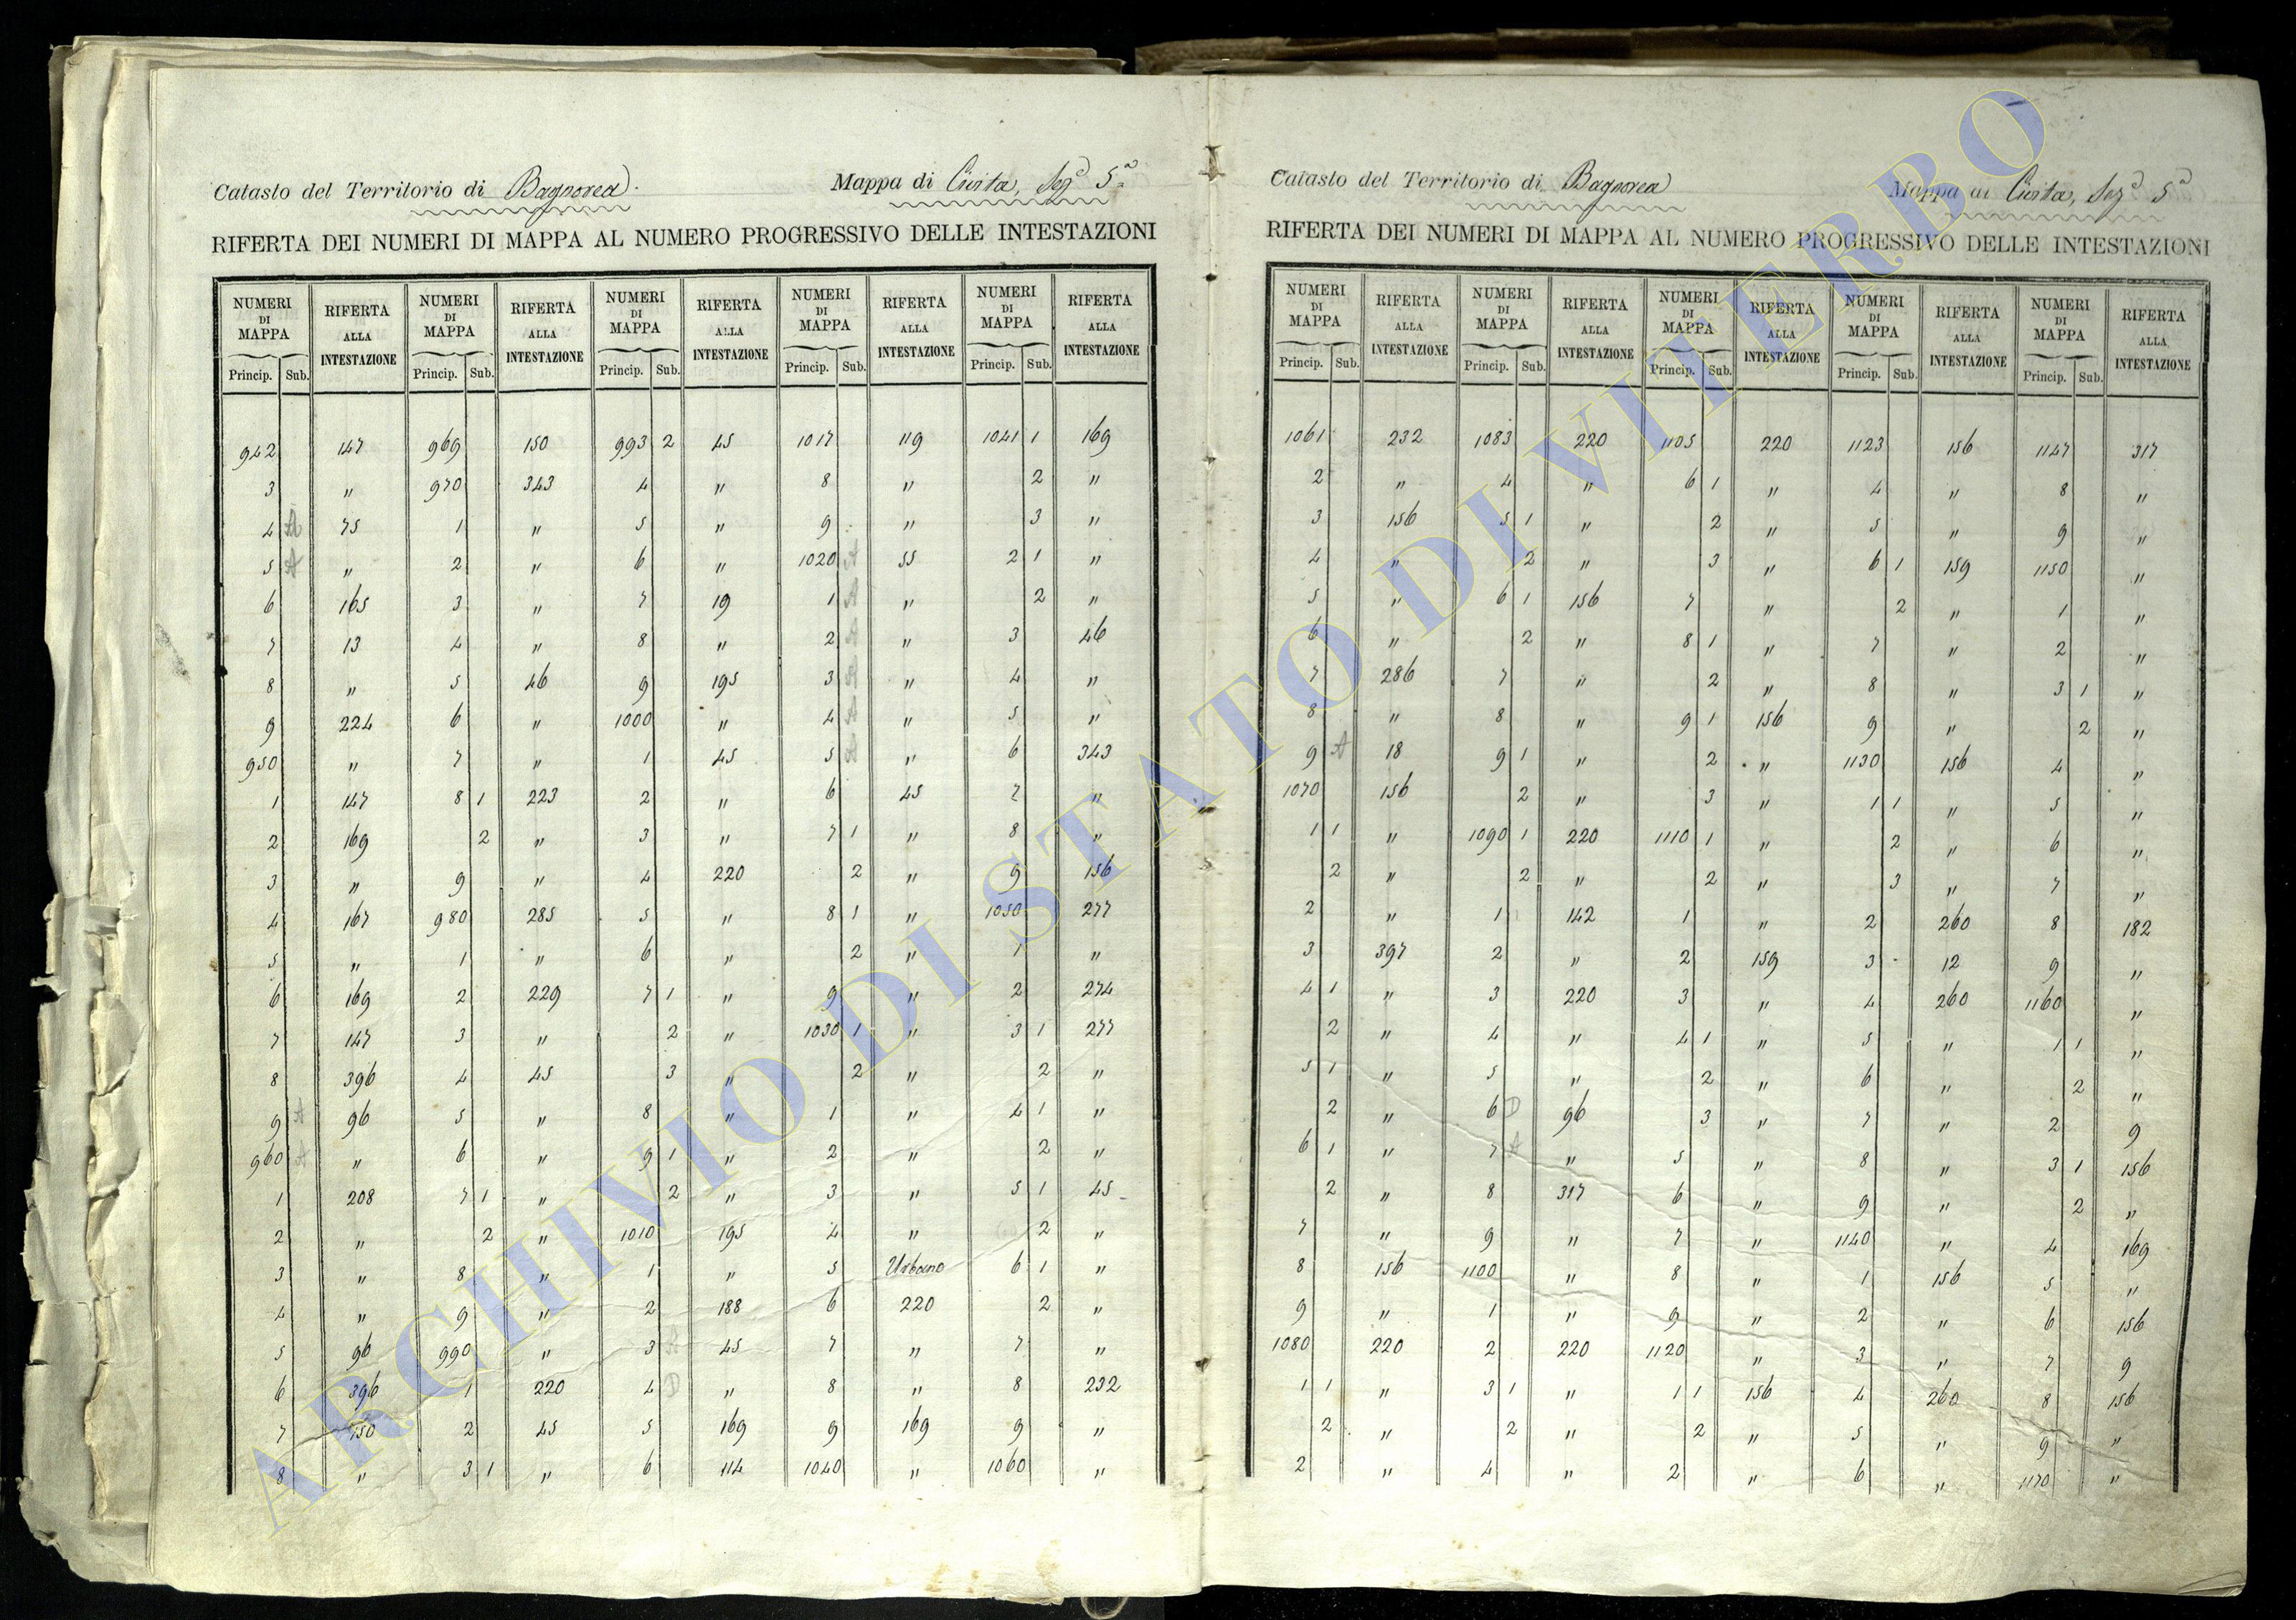 Catasto del Territorio di Bagnorea. Mappa di Civita, Sezª 5ª
RIFERTA DEI NUMERI DI MAPPA AL NUMERO PROGRESSIVO DELLE INTESTAZIONI
NUMERI DI MAPPA RIFERTA ALLA INTESTAZIONE NUMERI DI MAPPA RIFERTA ALLA INTESTAZIONE NUMERI DI MAPPA RIFERTA ALLA INTESTAZIONE NUMERI DI MAPPA RIFERTA ALLA INTESTAZIONE NUMERI DI MAPPA RIFERTA ALLA INTESTAZIONE
Princip. Sub. Princip. Sub. Princip. Sub. Princip. Sub. Princip. Sub.
942 147 969 150 993 2 45 1017 119 1041 1 169
3 " 970 343 4 " 8 " 2 "
4 A 75 1 " 5 " 9 " 3 "
5 A " 2 " 6 " 1020 A 55 2 1 "
6 165 3 " 7 19 1 A " 2 "
7 13 4 " 8 " 2 A " 3 46
8 " 5 46 9 195 3 A " 4 "
9 224 6 " 1000 " 4 A " 5 "
950 " 7 " 1 45 5 A " 6 343
1 147 8 1 223 2 " 6 45 7 "
2 169 2 " 3 " 7 1 " 8 "
3 " 9 " 4 220 2 " 9 156
4 167 980 285 5 " 8 1 " 1050 277
5 " 1 " 6 " 2 " 1 "
6 169 2 229 7 1 " 9 " 2 274
7 147 3 " 2 " 1030 1 " 3 1 277
8 396 4 45 3 " 2 " 2 "
9 A 96 5 " 8 " 1 " 4 1 "
960 A " 6 " 9 1 " 2 " 2 "
1 208 7 1 " 2 " 3 " 5 1 45
2 " 2 " 1010 195 4 " 2 "
3 " 8 " 1 " 5 Urbano 6 1 "
4 " 9 " 2 188 6 220 2 "
5 96 990 " 3 A 45 7 " 7 "
6 396 1 220 4 D " 8 " 8 232
7 150 2 45 5 169 9 169 9 "
8 " 3 1 " 6 114 1040 " 1060 "
Catasto del Territorio di Bagnorea Mappa di Civita, Sezª 5ª
RIFERTA DEI NUMERI DI MAPPA AL NUMERO PROGRESSIVO DELLE INTESTAZIONI
NUMERI DI MAPPA RIFERTA ALLA INTESTAZIONE NUMERI DI MAPPA RIFERTA ALLA INTESTAZIONE NUMERI DI MAPPA RIFERTA ALLA INTESTAZIONE NUMERI DI MAPPA RIFERTA ALLA INTESTAZIONE NUMERI DI MAPPA RIFERTA ALLA INTESTAZIONE
Princip. Sub. Princip. Sub. Princip. Sub. Princip. Sub. Princip. Sub.
1061 232 1083 220 1105 220 1123 156 1147 317
2 " 4 " 6 1 " 4 " 8 "
3 156 5 1 " 2 " 5 " 9 "
4 " 2 " 3 " 6 1 159 1150 "
5 " 6 1 156 7 " 2 " 1 "
6 " 2 " 8 1 " 7 " 2 "
7 286 7 " 2 " 8 " 3 1 "
8 " 8 " 9 1 156 9 " 2 "
9 A 18 9 1 " 2 " 1130 156 4 "
1070 156 2 " 3 " 1 1 " 5 "
1 1 " 1090 1 220 1110 1 " 2 " 6 "
2 " 2 " 2 " 3 " 7 "
2 " 1 142 1 " 2 260 8 182
3 397 2 " 2 159 3 12 9 "
4 1 " 3 220 3 " 4 260 1160 "
2 " 4 " 4 1 " 5 " 1 1 "
5 1 " 5 " 2 " 6 " 2 "
2 " 6 D 96 3 " 7 " 2 9
6 1 " 7 A " 5 " 8 " 3 1 156
2 " 8 317 6 " 9 " 2 "
7 " 9 " 7 " 1140 " 4 169
8 156 1100 " 8 " 1 156 5 "
9 " 1 " 9 " 2 " 6 156
1080 220 2 220 1120 " 3 " 7 9
1 1 " 3 1 " 1 1 156 4 260 8 156
2 " 2 " 2 " 5 " 9 "
2 " 4 " 2 " 6 " 1170 "
ARCHIVIO DI STATO DI VITERBO